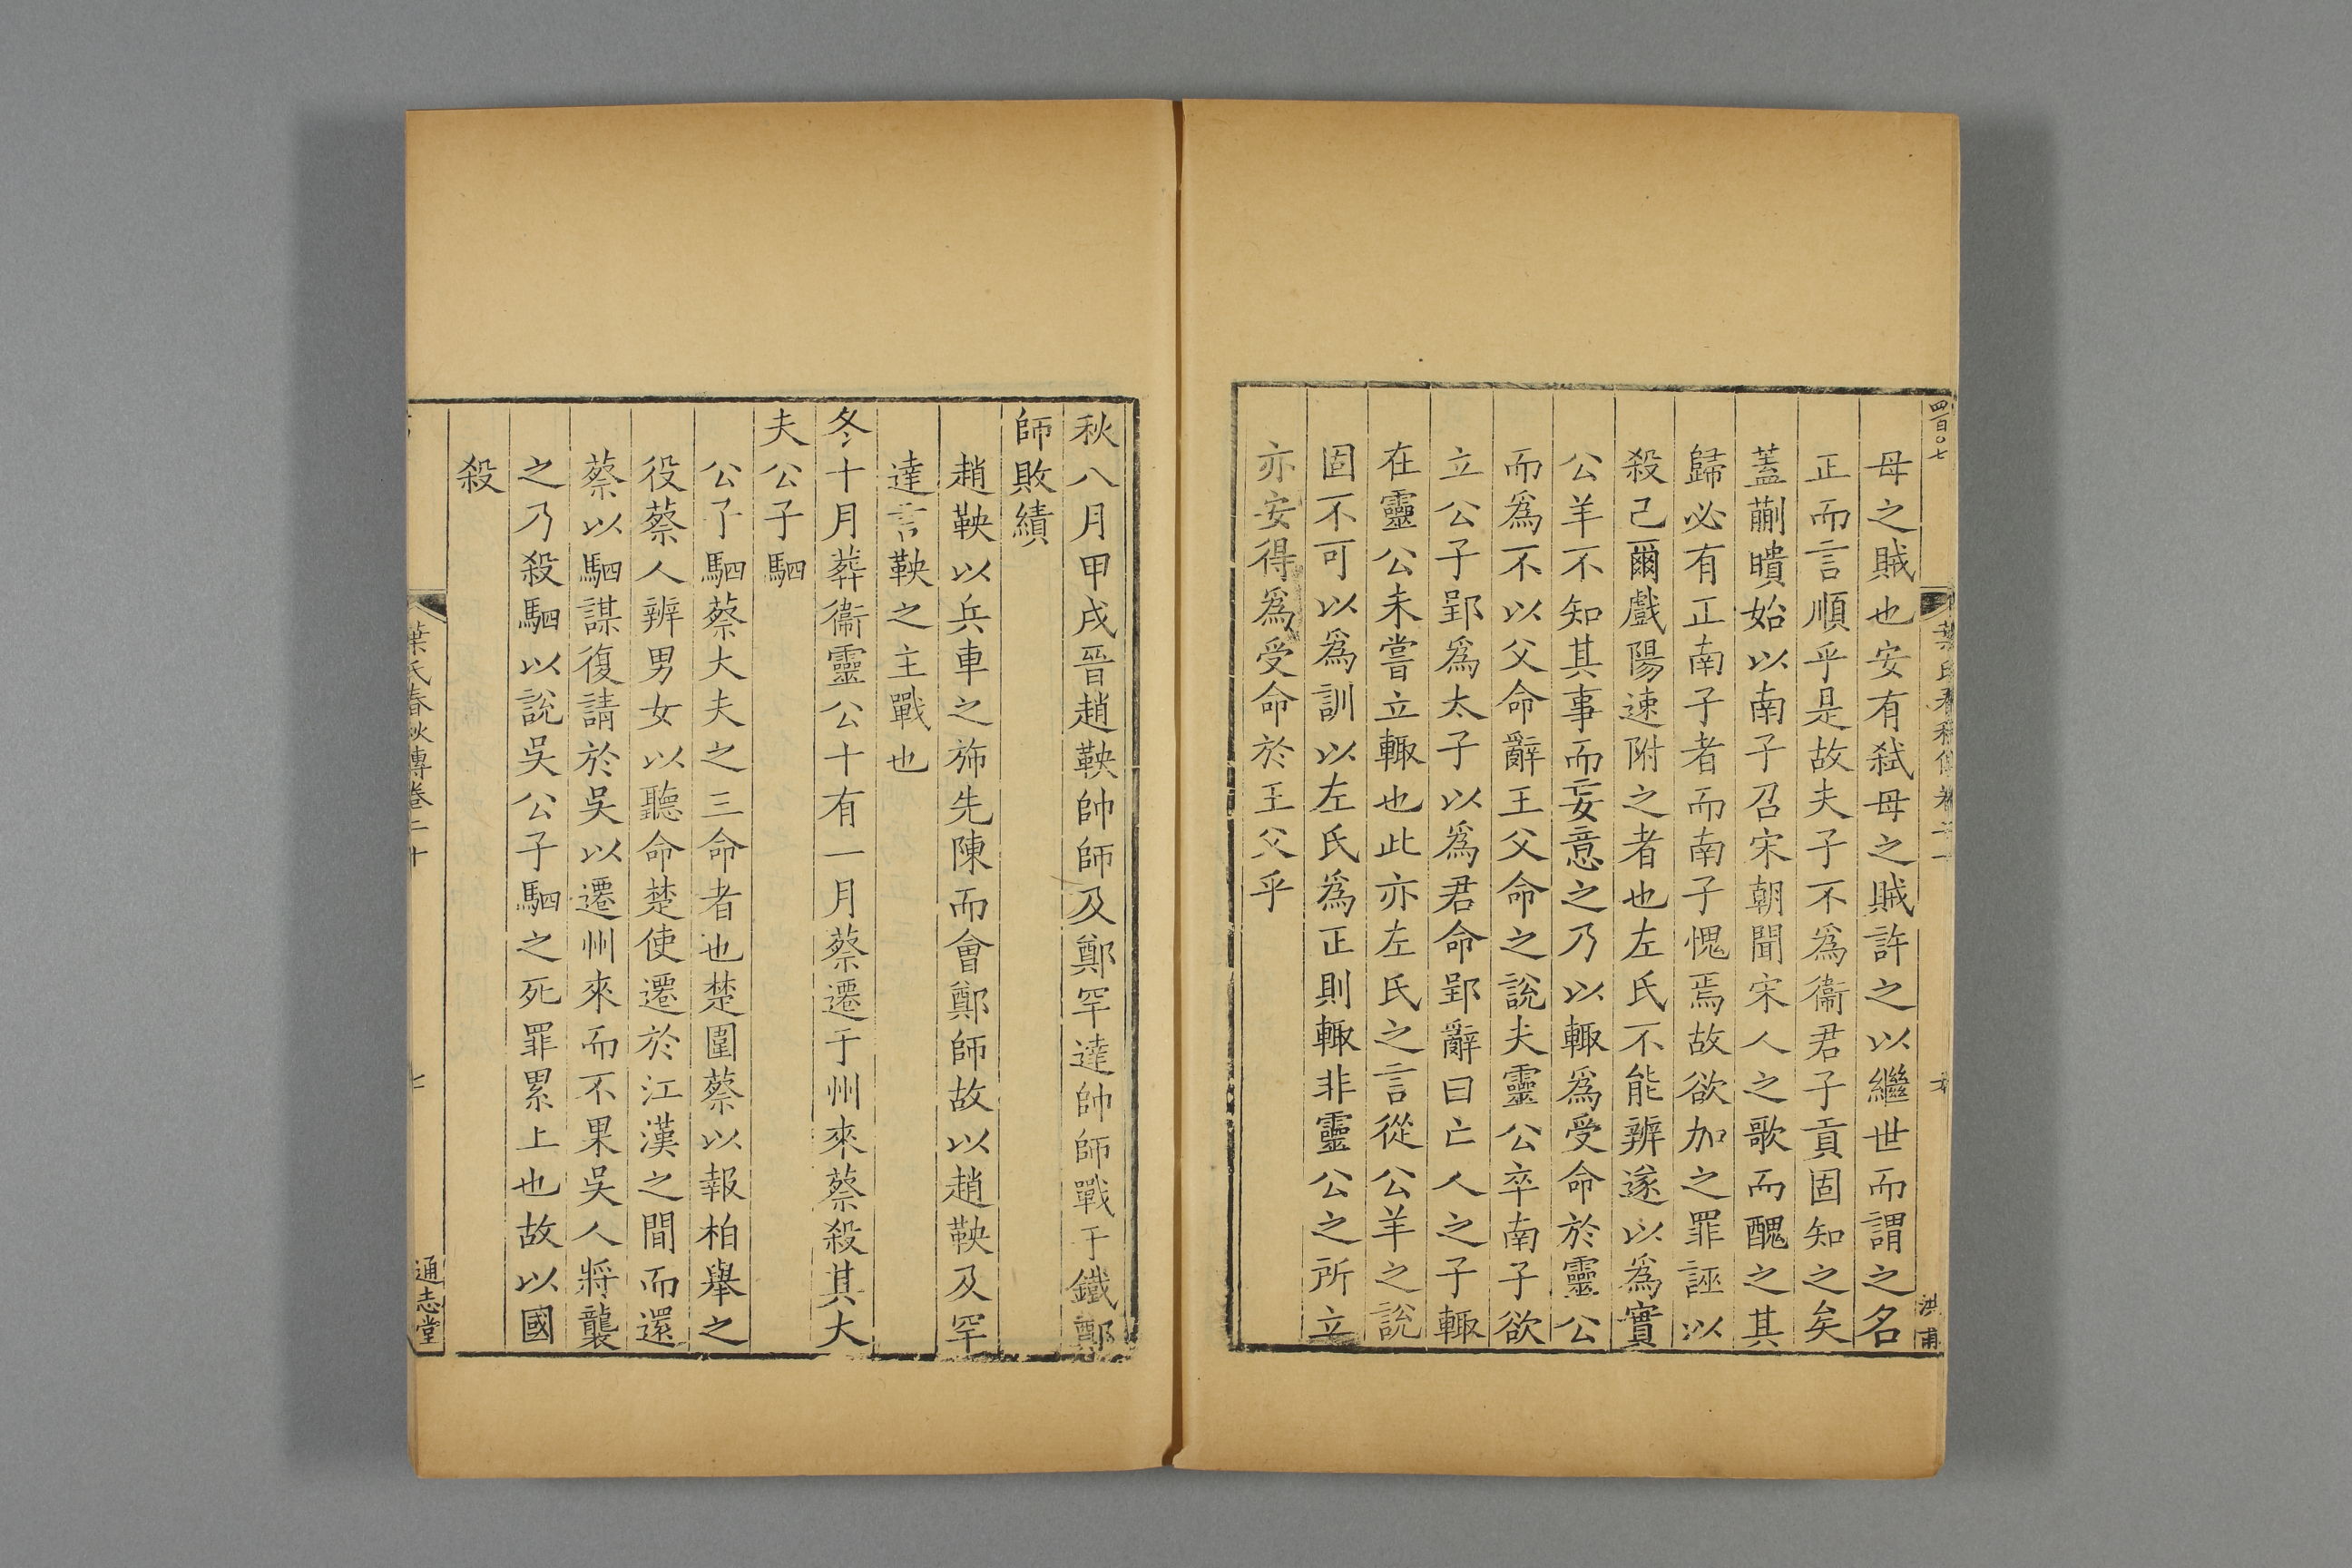 四百〇七
葉氏春秋傳卷二十
洪甫
母之賊也安有弑母之賊許之以繼世而謂之名
正而言順乎是故夫子不爲衞君子貢固知之矣
蓋蒯聵始以南子召宋朝聞宋人之歌而醜之其
歸必有正南子者而南子愧焉故欲加之罪誣以
殺己爾戲陽速附之者也左氏不能辨遂以爲實
公羊不知其事而妄意之乃以輒爲受命於靈公
而爲不以父命辭王父命之說夫靈公卒南子欲
立公子郢爲太子以爲君命郢辭曰亡人之子輒
在靈公未嘗立輒也此亦左氏之言從公羊之說
固不可以爲訓以左氏爲正則輒非靈公之所立
亦安得爲受命於王父乎
秋八月甲戌晉趙鞅帥師及鄭罕達帥師戰于鐵鄭
師敗績
趙鞅以兵車之斾先陳而會鄭師故以趙鞅及罕
達言鞅之主戰也
冬十月葬衞靈公十有一月蔡遷于州來蔡殺其大
夫公子駟
公子駟蔡大夫之三命者也楚圍蔡以報柏舉之
役蔡人辨男女以聽命楚使遷於江漢之間而還
蔡以駟謀復請於吳以遷州來而不果吳人將襲
之乃殺駟以說吳公子駟之死罪累上也故以國
殺
葉氏春秋傳卷二十
七
通志堂